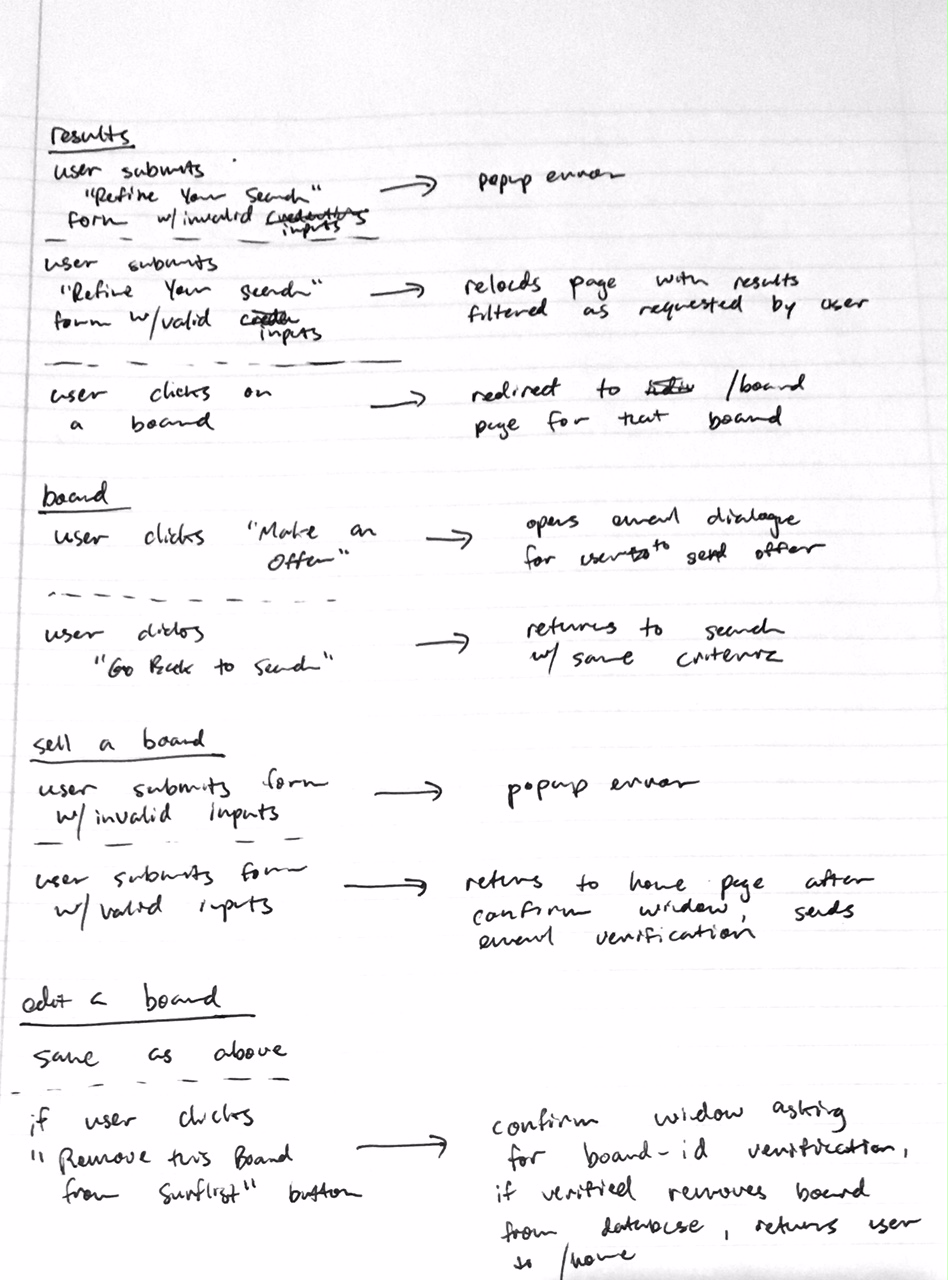 results
user submits
"Refine Your Search"
form w/ invalid inputs
→ popup error
user submits
"Refine Your search"
form w/ valid inputs
→ reloads page with results
filtered as requested by user
user clicks on
a board
→ redirect to /board
page for that board
board
user clicks "Make an
Offer"
→ opens email dialogue
for user to send offer
user clicks
"Go Back to Search"
→ returns to search
w/ same criteria
sell a board
user submits form
w/ invalid inputs
→ popup error
user submits form
w/ valid inputs
→ returns to home page after
confirm window, sends
email verification
edit a board
same as above
if user clicks
"Remove this Board
from Surflist" button
→ confirm window asking
for board-id verification,
if verified removes board
from database, returns user
to /home